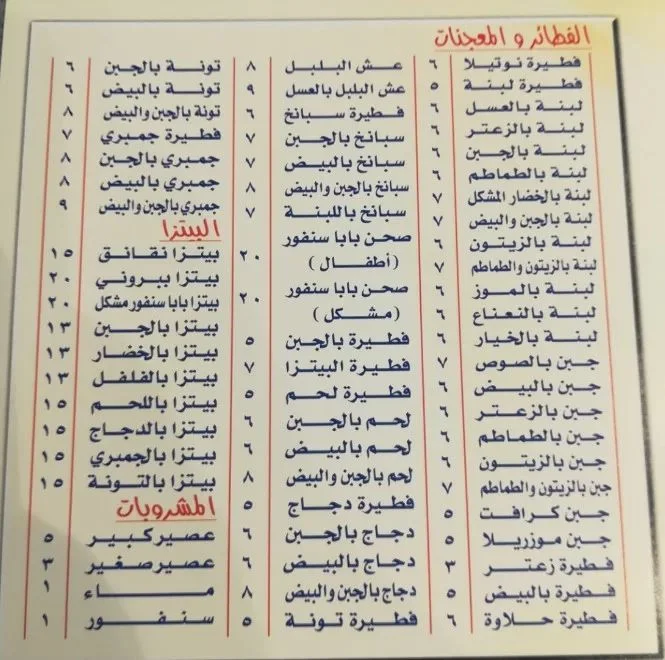 الفطائر و المعجنات
فطيرة نوتيلا ٦
فطيرة لبنة ٥
لبنة بالعسل ٦
لبنة بالزعتر ٦
لبنة بالجبن ٦
لبنة بالطماطم ٦
لبنة بالخضار المشكل ٧
لبنة بالجبن والبيض ٧
لبنة بالزيتون ٦
لبنة بالزيتون والطماطم ٧
لبنة بالموز ٦
لبنة بالنعناع ٦
لبنة بالخيار ٦
جبن بالصوص ٧
جبن بالبيض ٦
جبن بالزعتر ٦
جبن بالطماطم ٦
جبن بالزيتون ٦
جبن بالزيتون والطماطم ٧
جبن كرافت ٥
جبن موزريلا ٥
فطيرة زعتر ٣
فطيرة بالبيض ٥
فطيرة حلاوة ٦
عش البلبل ٨
عش البلبل بالعسل ٩
فطيرة سبانخ ٦
سبانخ بالجبن ٧
سبانخ بالبيض ٧
سبانخ بالجبن والبيض ٨
سبانخ باللبنة ٧
صحن بابا سنفور
(أطفال) ٢٠
صحن بابا سنفور
(مشكل) ٢٠
فطيرة بالجبن ٥
فطيرة البيتزا ٧
فطيرة لحم ٥
لحم بالجبن ٦
لحم بالبيض ٦
لحم بالجبن والبيض ٨
فطيرة دجاج ٥
دجاج بالجبن ٦
دجاج بالبيض ٦
دجاج بالجبن والبيض ٨
فطيرة تونة ٥
تونة بالجبن ٦
تونة بالبيض ٦
تونة بالجبن والبيض ٨
فطيرة جمبري ٧
جمبري بالجبن ٨
جمبري بالبيض ٨
جمبري بالجبن والبيض ٩
البيتزا
بيتزا نقانق ١٥
بيتزا ببروني ٢٠
بيتزا بابا سنفور مشكل ٢٠
بيتزا بالجبن ١٣
بيتزا بالخضار ١٣
بيتزا بالفلفل ١٣
بيتزا باللحم ١٥
بيتزا بالدجاج ١٥
بيتزا بالجمبري ١٥
بيتزا بالتونة ١٥
المشروبات
عصير كبير ٥
عصير صغير ٣
ماء ١
سنفور ١